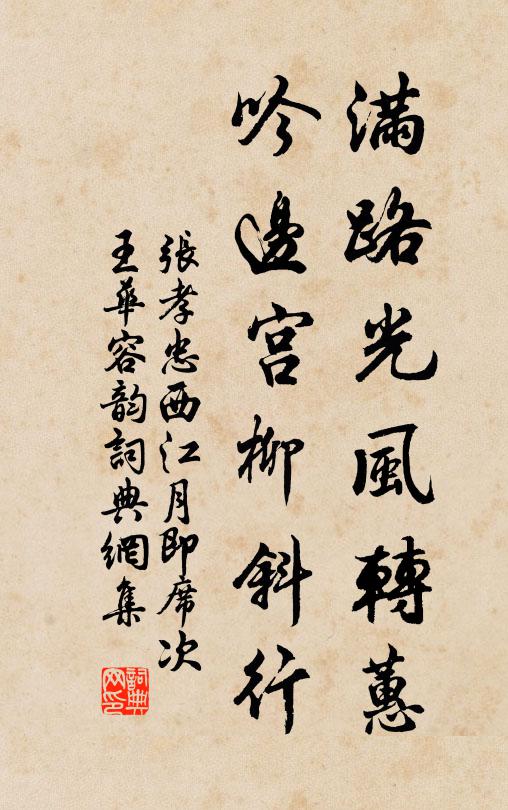 滿路光風轉蕙
吟邊宮柳斜行
張孝忠西江月即席次
王華容韵詞典網集
詞典
网印